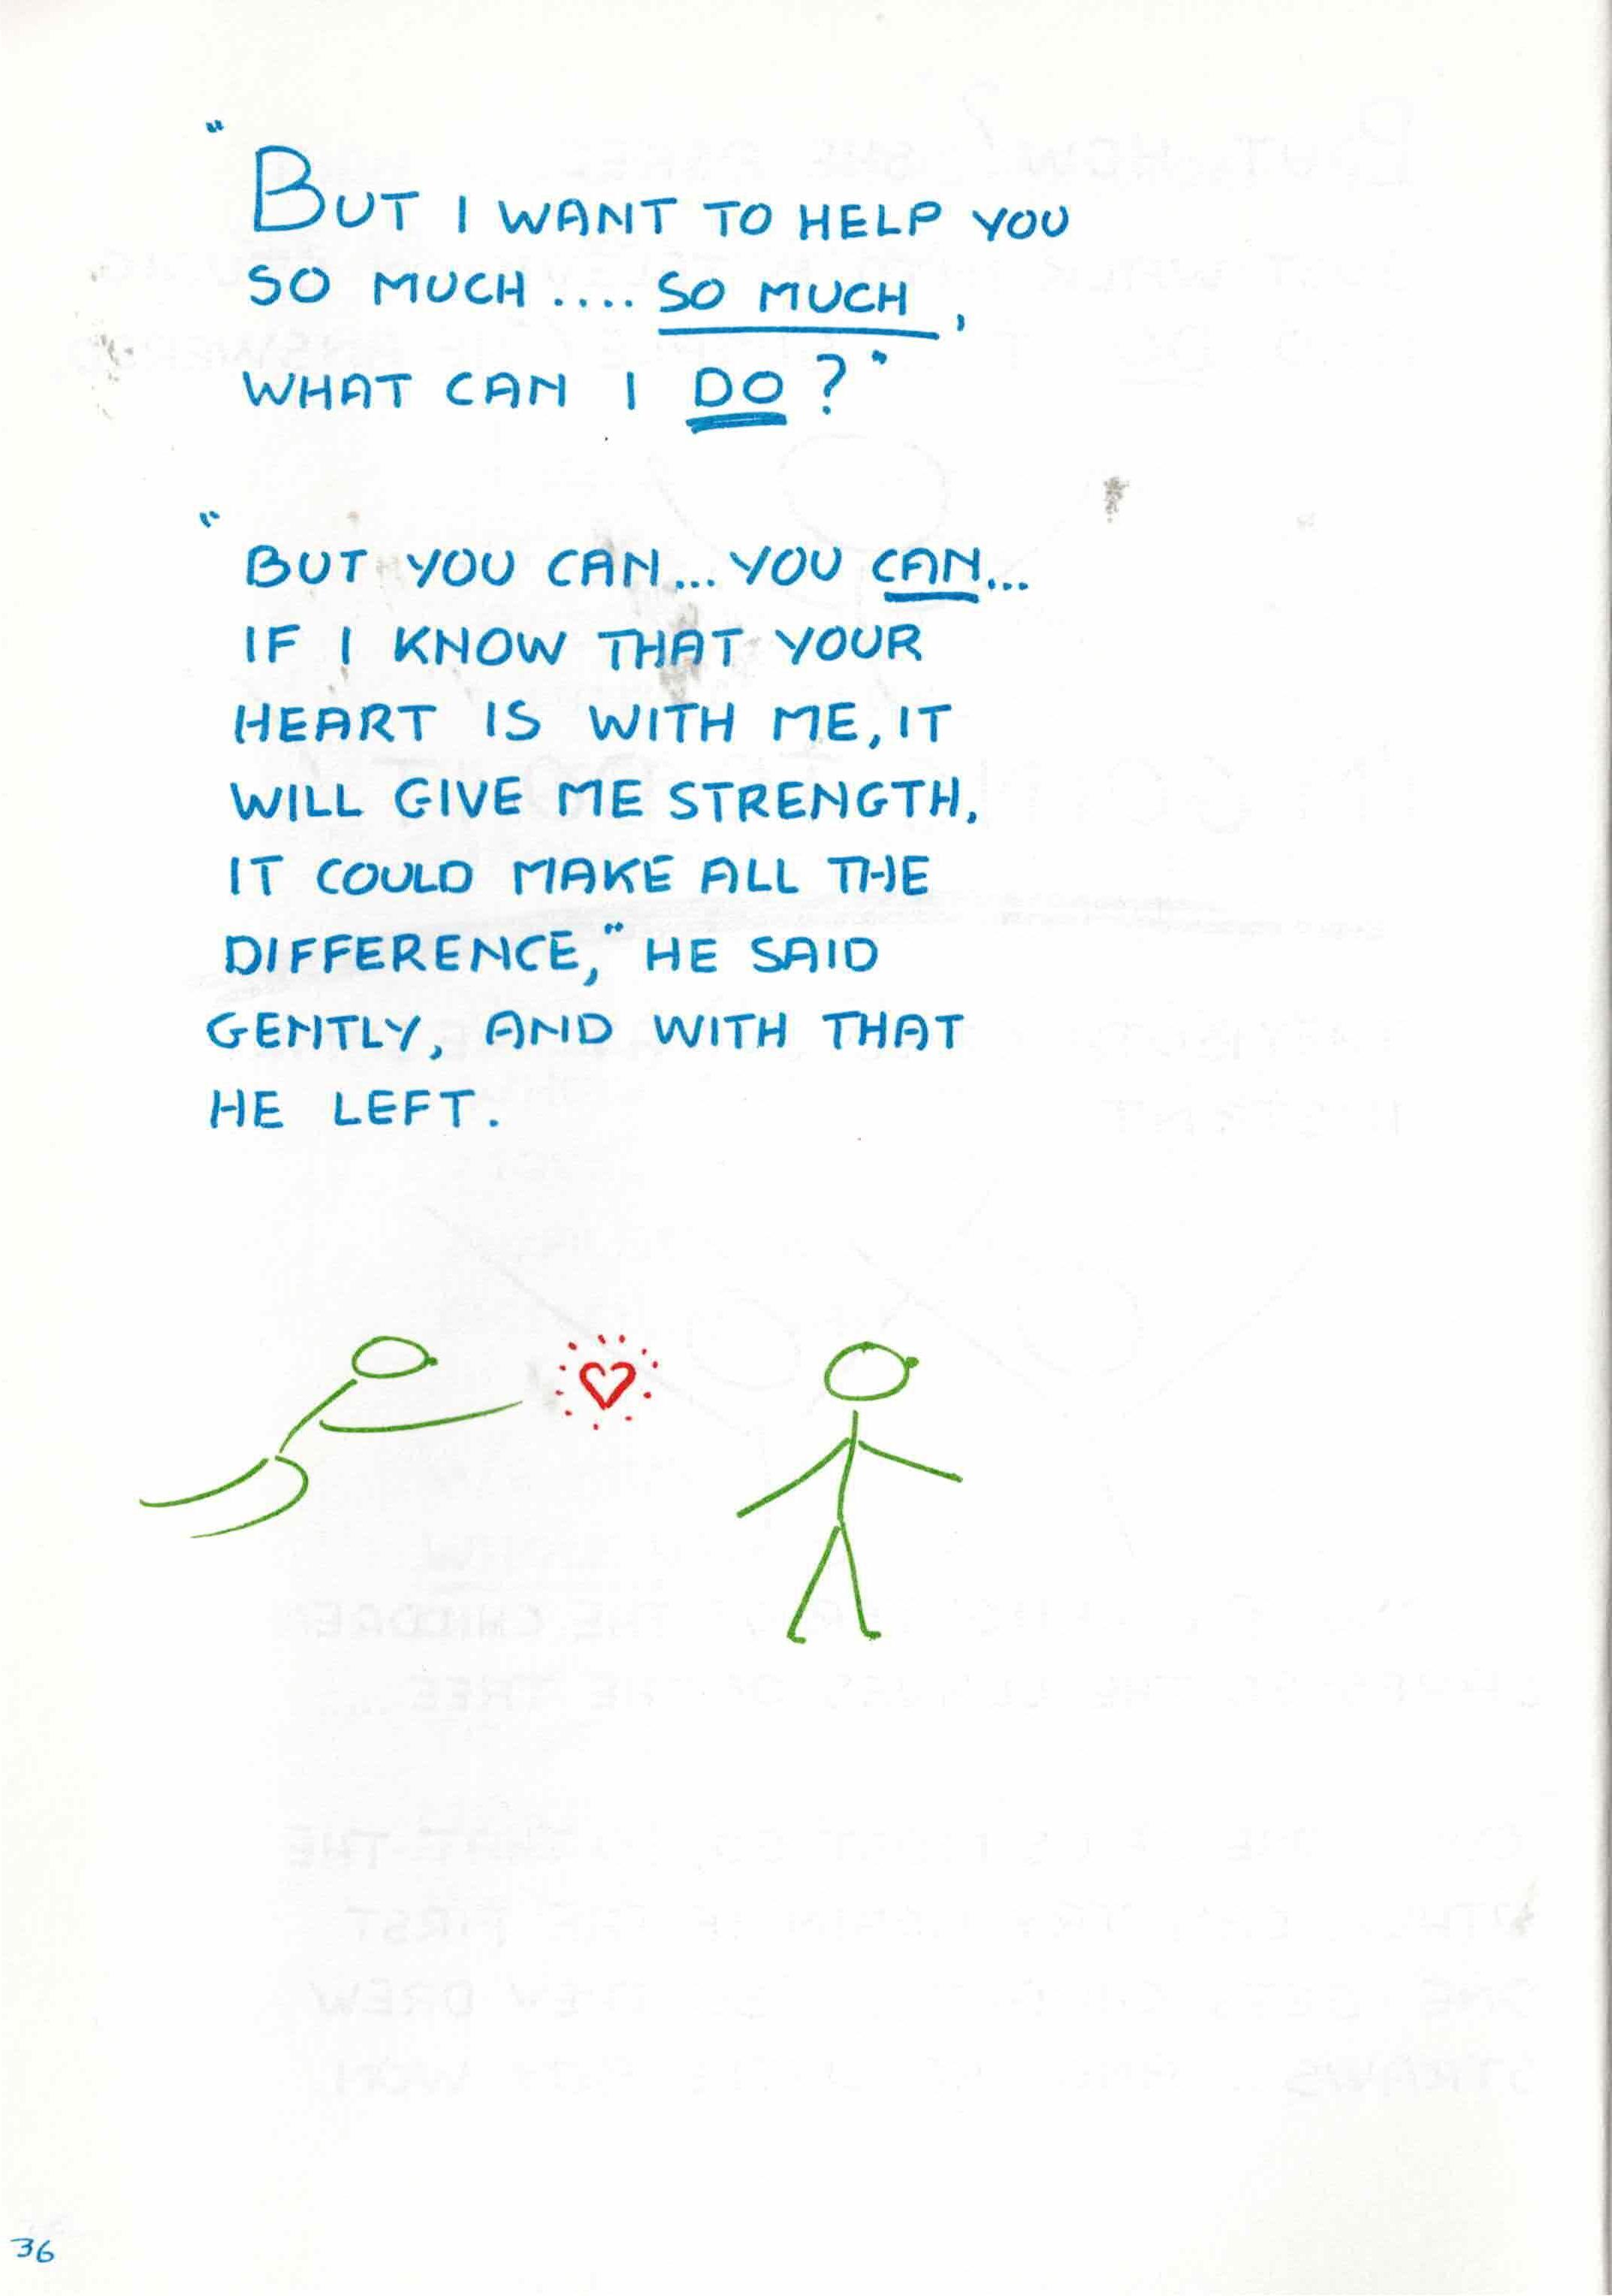 "
BUT I WANT TO HELP YOU
SO MUCH .... SO MUCH,
WHAT CAN I DO?"
"
BUT YOU CAN... YOU CAN...
IF I KNOW THAT YOUR
HEART IS WITH ME, IT
WILL GIVE ME STRENGTH,
IT COULD MAKE ALL THE
DIFFERENCE," HE SAID
GENTLY, AND WITH THAT
HE LEFT.
36